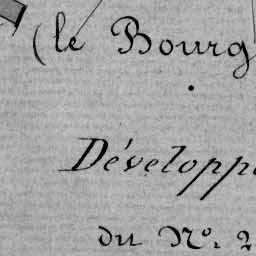 (le Bourg
Développe
du Nº. 2